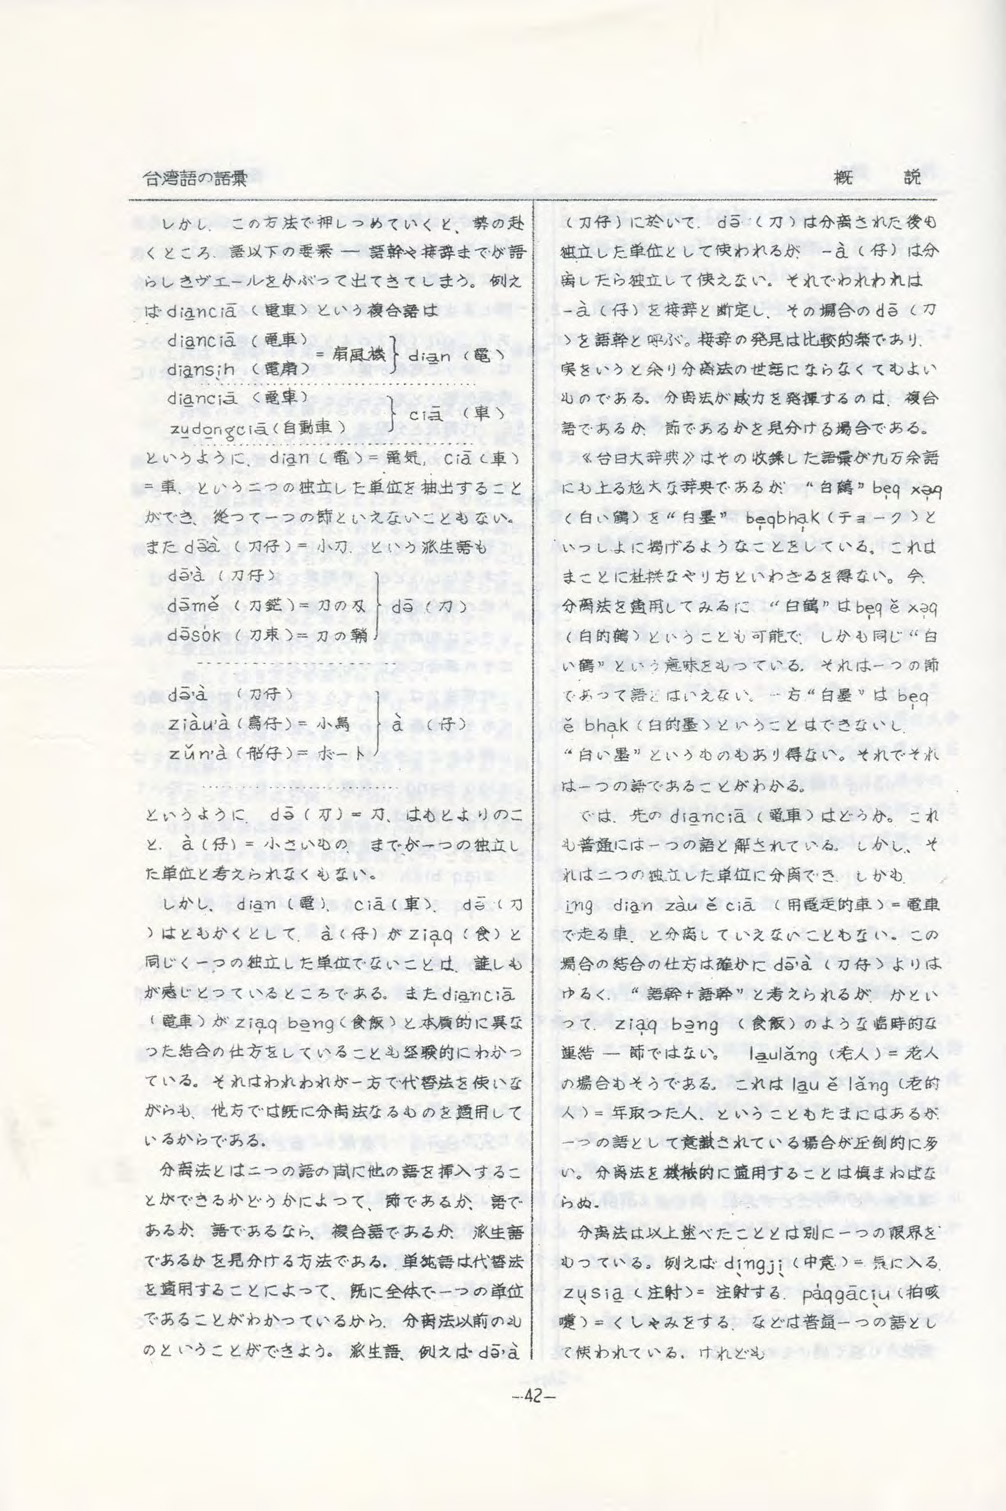 台湾語の語彙
概　説
しかし、この方法で押しつめていくと、勢の赴
くところ、語以下の要素 ― 語幹や接辞までが語
らしきヴエールをかぶって出てきてしまう。例え
ば diạnciā (電車) という複合語は
diạnciā (電車)
diạnsịh (電扇)
= 扇風機
diạn (電)
diạnciā (電車)
zụdọngciā (自動車)
ciā (車)
というように、diạn (電) = 電気, ciā (車)
= 車、という二つの独立した単位を抽出すること
ができ、従つて一つの節といえないこともない。
また də̄à (刀仔) = 小刀、という派生語も
də̄'à (刀仔)
də̄mě (刀鋩) = 刀の刃
də̄sók (刀束) = 刀の鞘
də̄ (刀)
də̄'à (刀仔)
ziàu'à (鳥仔) = 小鳥
zǔn'à (船仔) = ボート
à (仔)
というように、də̄ (刀) = 刀、はもとよりのこ
と、à (仔) = 小さいもの、までが一つの独立し
た単位と考えられなくもない。
しかし、diạn (電)、ciā (車)、də̄ (刀
) はともかくとして、à (仔) が ziạq (食) と
同じく一つの独立した単位でないことは、誰しも
が感じとつているところである。また diạnciā
(電車) が ziạq bẹng (食飯) と本質的に異な
つた結合の仕方をしていることも経験的にわかつ
ている。それはわれわれが一方で代替法を使いな
がらも、他方では既に分离法なるものを適用して
いるからである。
分离法とは二つの語の間に他の語を挿入するこ
とができるかどうかによって、節であるか、語で
あるか、語であるなら、複合語であるか、派生語
であるかを見分ける方法である。単純語は代替法
を適用することによって、既に全体で一つの単位
であることがわかっているから、分离法以前のも
のということができよう。派生語、例えば də̄'à
(刀仔) に於いて、də̄ (刀) は分离された後も
独立した単位として使われるが、-à (仔) は分
离したら独立して使えない。それでわれわれは
-à (仔) を接辞と断定し、その場合の də̄ (刀
) を語幹と呼ぶ。接辞の発見は比較的楽であり、
実をいうと余り分离法の世話にならなくてもよい
ものである。分离法が威力を発揮するのは、複合
語であるか、節であるかを見分ける場合である。
《台日大辞典》はその収錄した語彙が九万余語
にも上る尨大な辞典であるが、“白鶴” bẹq xạq
(白い鶴) を“白墨” bẹqbhạk (チョーク) と
いつしよに揭げるようなことをしている。これは
まことに杜撰なやり方といわざるを得ない。今、
分离法を適用してみるに、“白鶴” は bẹq ě xạq
(白的鶴) ということも可能で、しかも同じ“白
い鶴” という意味をもつている。それは一つの節
であって語とはいえない。一方“白墨” は bẹq
ě bhạk (白的墨) ということはできないし、
“白い墨” というものもあり得ない。それでそれ
は一つの語であることがわかる。
では、先の diạnciā (電車) はどうか。これ
も普通には一つの語と解されている。しかし、そ
れは二つの独立した単位に分离でき、しかも、
ịng diạn zàu ě ciā (用電走的車) = 電車
で走る車、と分离していえないこともない。この
場合の結合の仕方は確かに də̄'à (刀仔) よりは
ゆるく、“語幹+語幹” と考えられるが、かとい
つて、ziạq bẹng (食飯) のような臨時的な
連結 ― 節ではない。lạulǎng (老人) = 老人
の場合もそうである。これは lạu ě lǎng (老的
人) = 年取つた人、ということもたまにはあるが、
一つの語として意識されている場合が圧倒的に多
い。分离法を機械的に適用することは慎まねばな
らぬ。
分离法は以上述べたこととは別に一つの限界を
もつている。例えば dịngjị (中意) = 気に入る、
zụsiạ (注射) = 注射する、pàqgāciụ (拍咳
嚏) = くしゃみをする、などは普通一つの語とし
て使われている。けれども
—42—